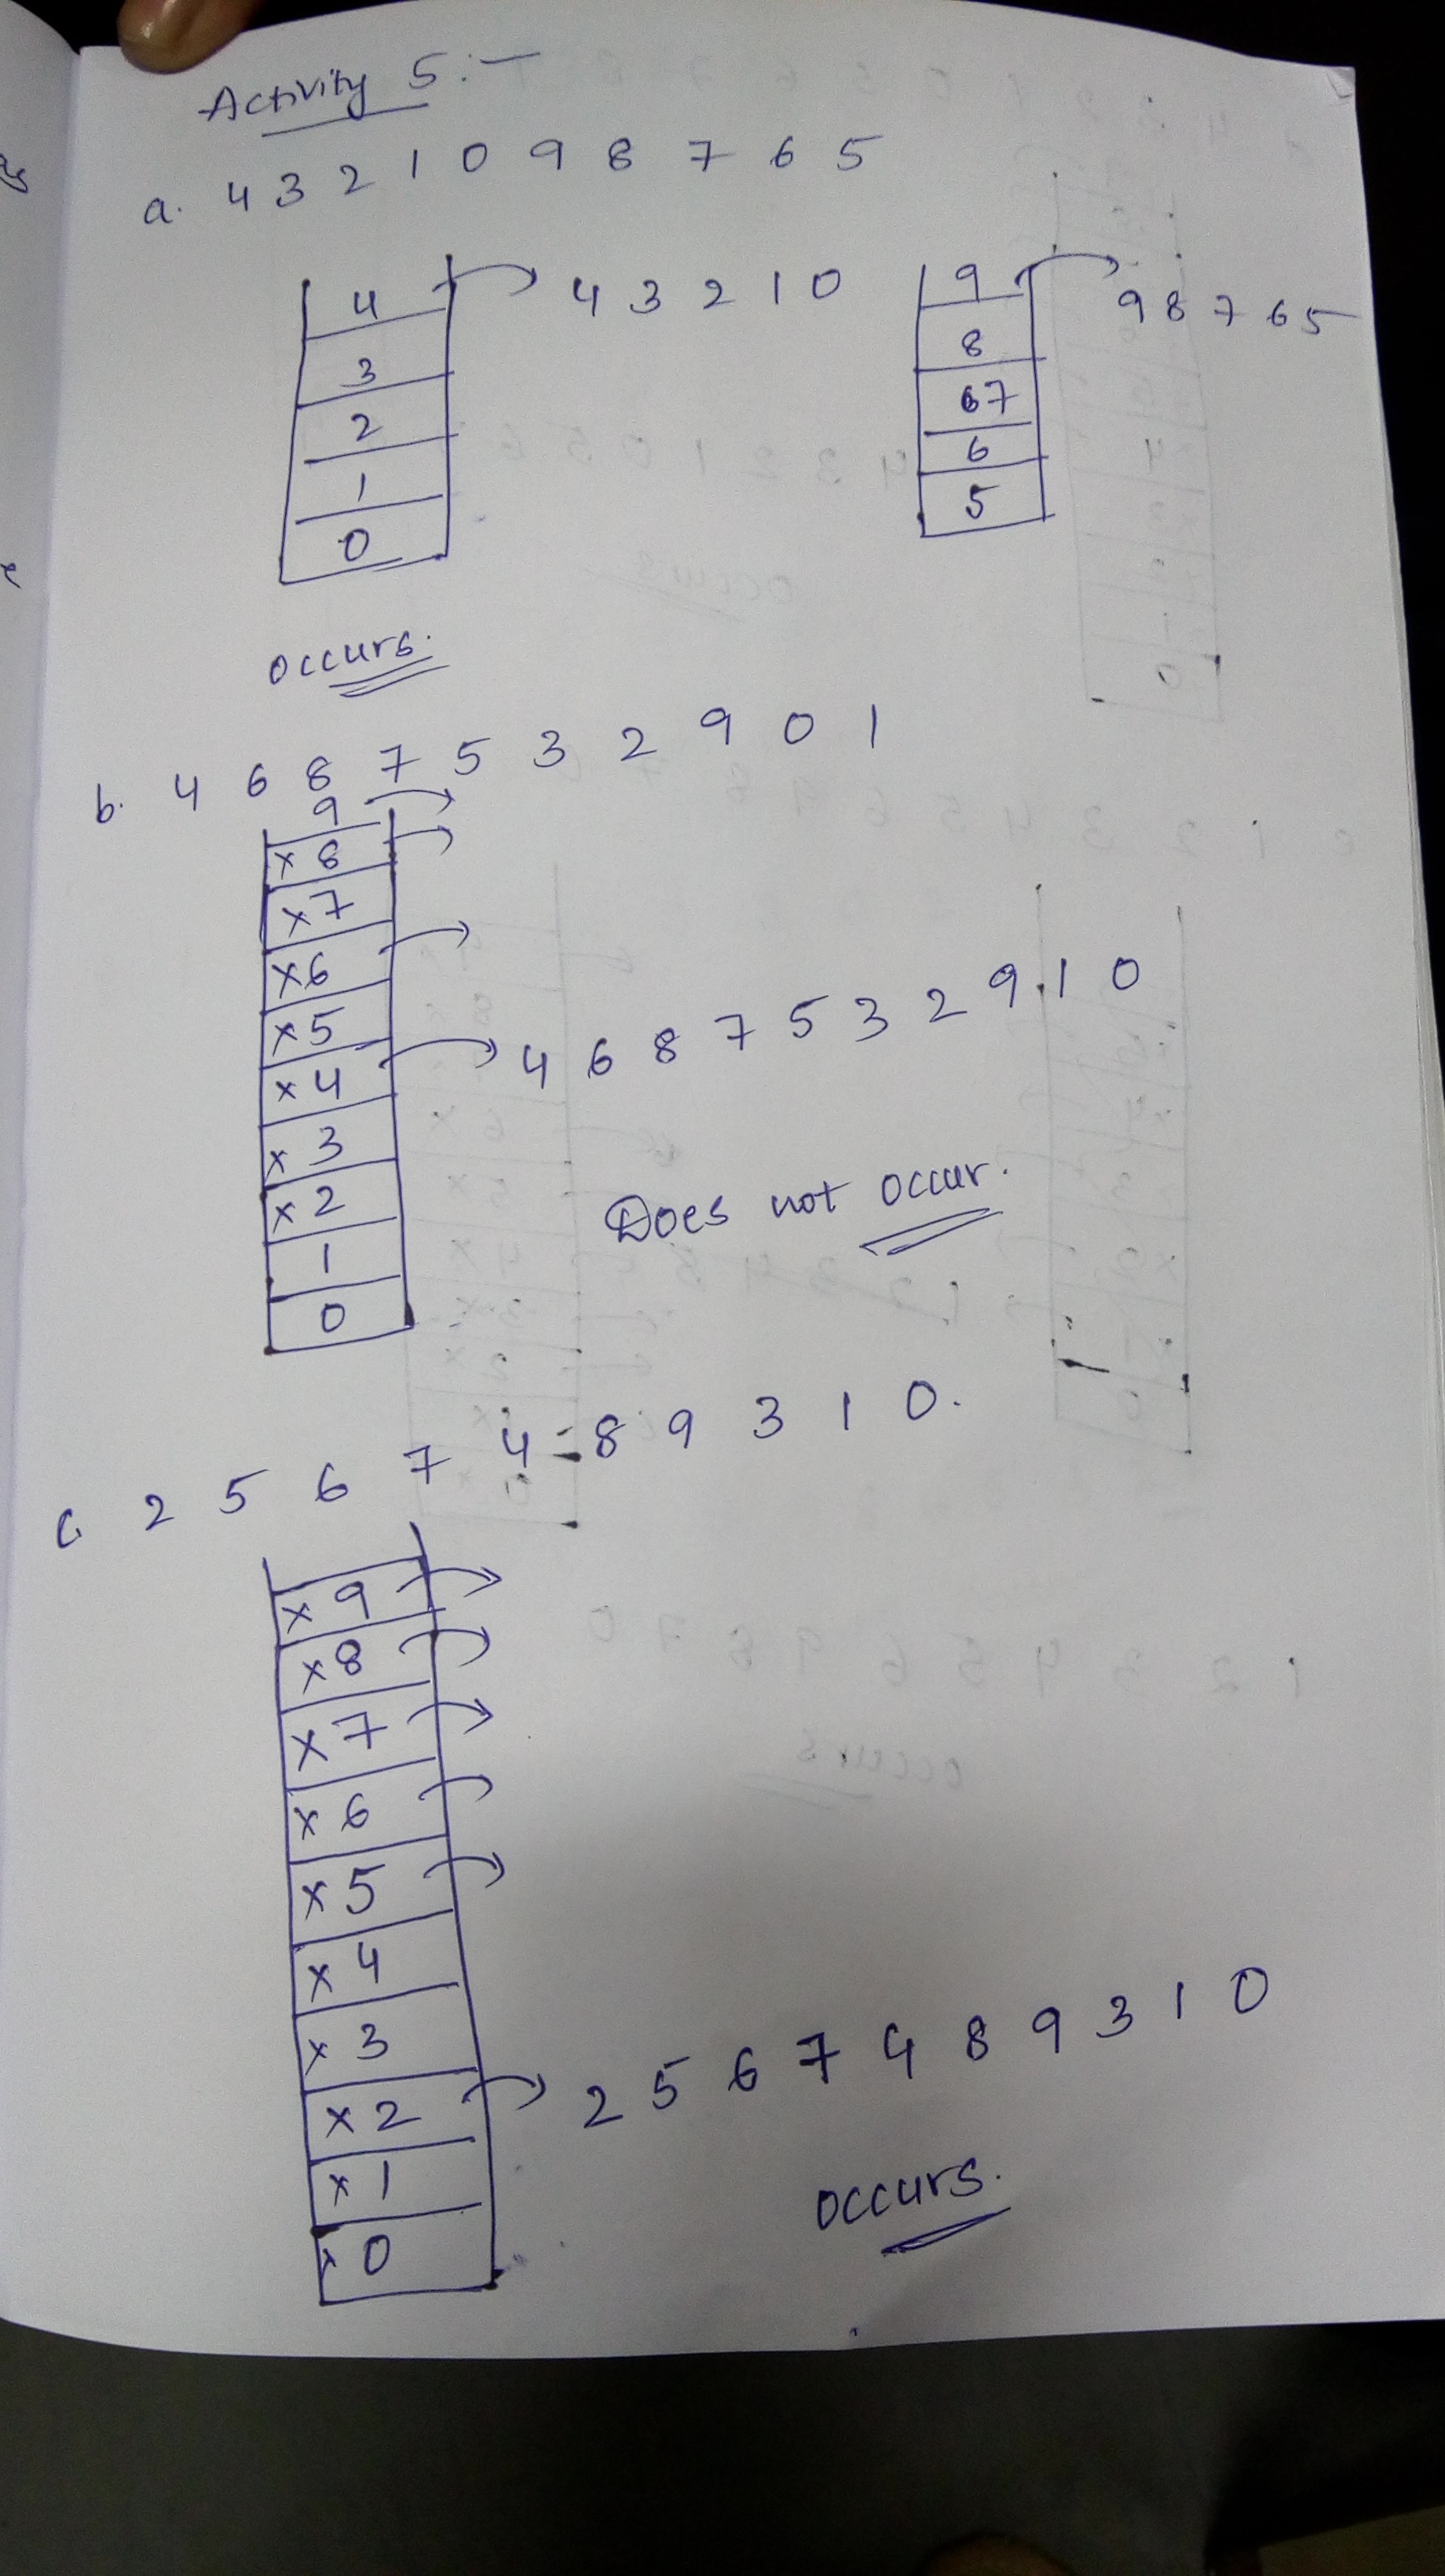 Activity 5:-
a. 4 3 2 1 0 9 8 7 6 5
4 → 4 3 2 1 0
3
2
1
0
9 → 9 8 7 6 5
8
67
6
5
occurs.
b. 4 6 8 7 5 3 2 9 0 1
9
x 8
x 7
x 6
x 5
x 4 → 4 6 8 7 5 3 2 9 1 0
x 3
x 2
1
0
Does not occur.
c. 2 5 6 7 4 8 9 3 1 0.
x 9
x 8
x 7
x 6
x 5
x 4
x 3
x 2 → 2 5 6 7 4 8 9 3 1 0
x 1
x 0
occurs.